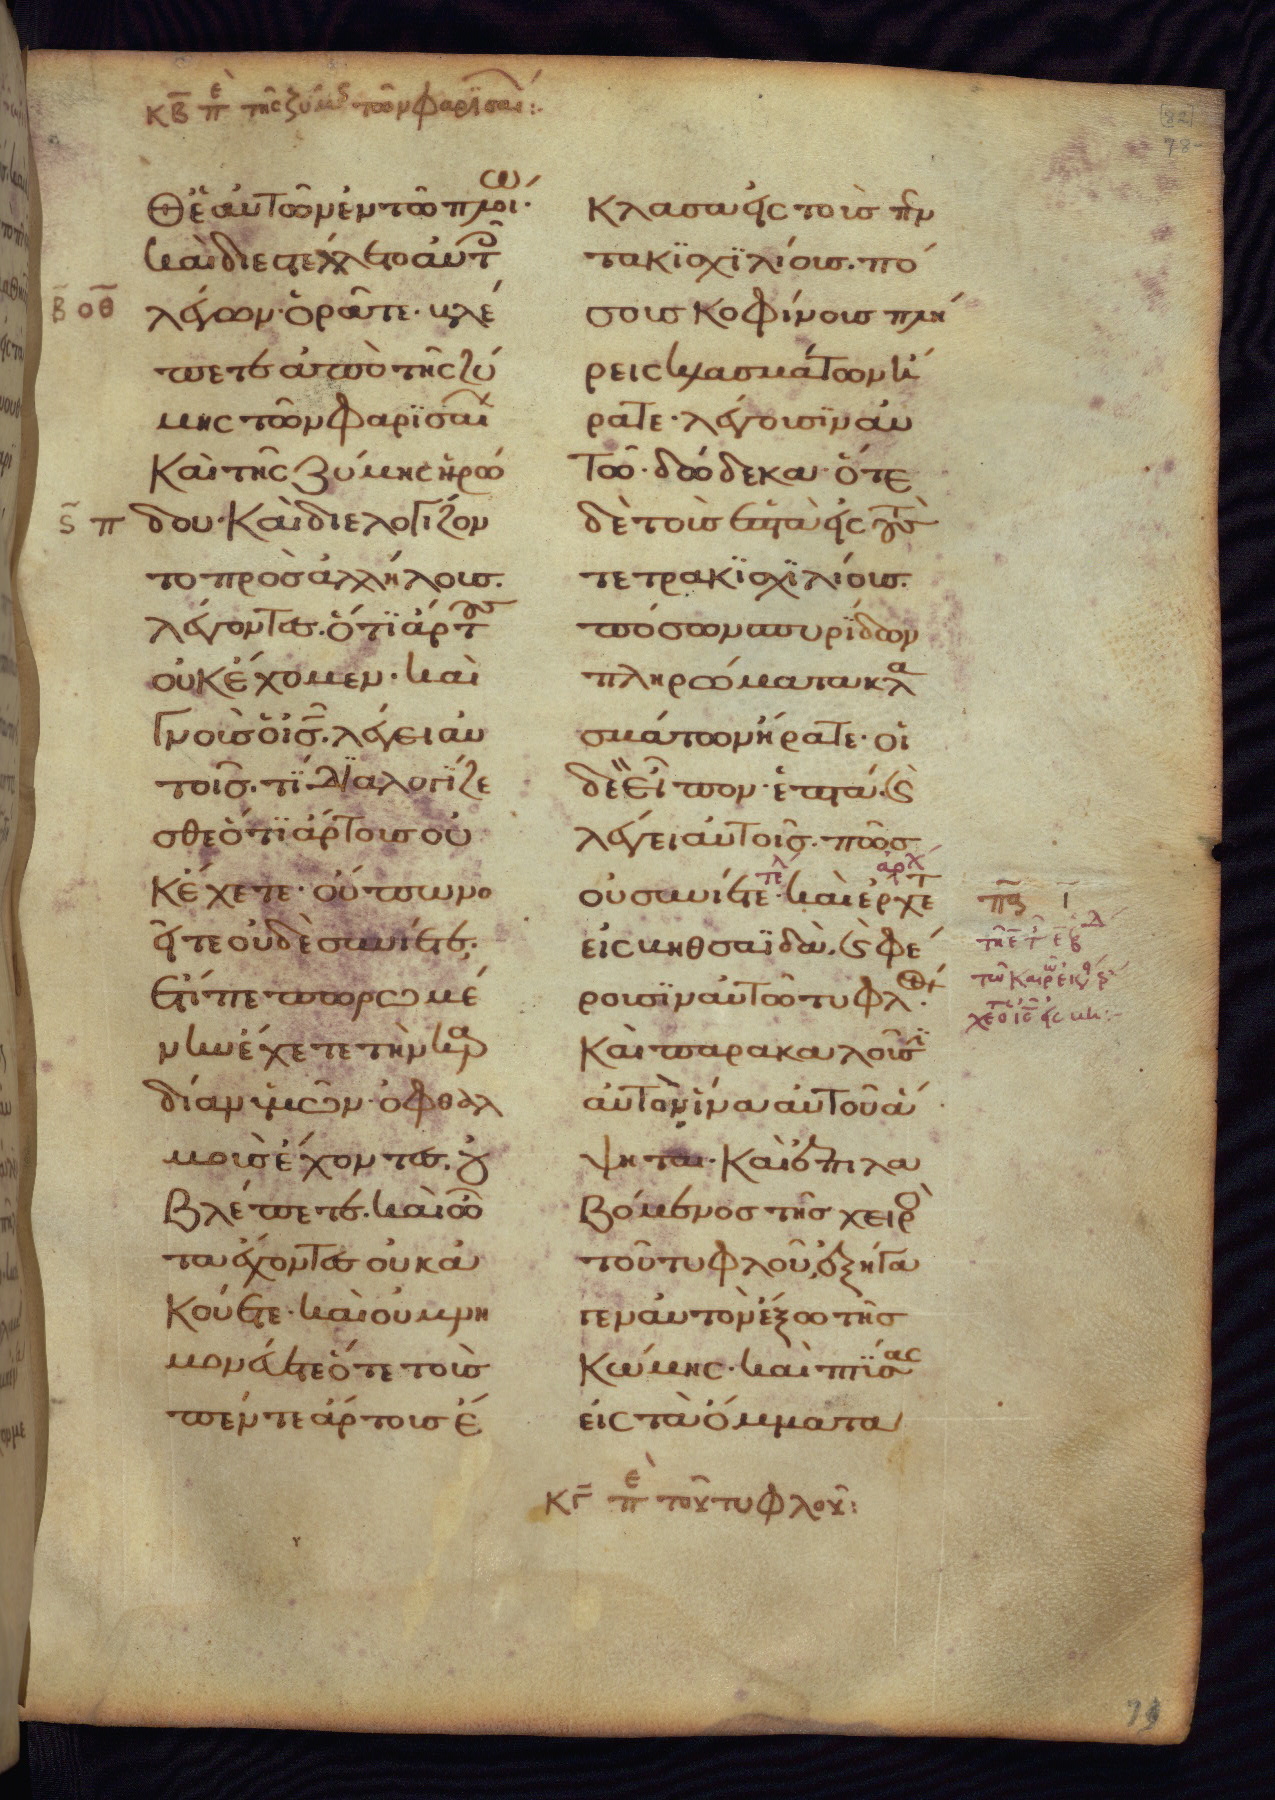 κβ π̅ὲ τῆς ζύμης τῶν φαρϊσαί:
θέαυτῶν ἐν τῶ πλοί ω.
καὶ διεστέλλετο αὐτ
β οθ λέγων· ὁρᾶτε· βλέ
πετε ἀπὸ τῆς ζύ
μης τῶν φαρϊσαί
καὶ τῆς ζύμης ἡρώ
ς π δου· καὶ διελογίζον
το πρὸς ἀλλήλους.
λέγοντες. ὅτϊ ἄρτους
οὐκ ἔχομεν· καὶ
γνοὺς ὁ ις. λέγει αὐ
τοῖς. τί διαλογίζε
σθε ὅτϊ ἄρτους οὐ
κ ἔχετε· οὔπω νο
εῖτε οὐδὲ συνίετε;
ἔτι πεπωρωμέ
νην ἔχετε τὴν καρ
δίαν ὑμῶν· ὀφθαλ
μοὺς ἔχοντες. οὐ
βλέπετε. καὶ ὦ
τα ἔχοντες οὐκ ἀ
κούετε· καὶ οὐ μνη
μονεύετε ὅτε τοὺς
πέντε ἄρτους ἔ
κλασα εἰς τοὺς πεν
τακϊσχϊλίους. πό
σους κοφίνους πλή
ρεις κλασμάτων ἤ
ρατε· λέγουσϊν αὐ
τῶ· δώδεκα· ὅτε
δὲ τοὺς ἑπτὰ εἰς τοὺς
τετρακϊσχϊλίους.
πόσων σπυρϊδων
πληρώματα κλα
σμάτων ἤρατε· οἱ
δὲ εἶπον· ἑπτά. καὶ
λέγει αὐτοῖς. πῶς
οὐ συνίετε· καὶ ἔρχετ
τελ ἀρχ
πζ ι
εἰς βηθσαϊδὰ. καὶ φέ
ρουσϊν αὐτῶ τυφλ
καὶ παρακαλοῦσϊ
αὐτὸν ἵνα αὐτοῦ ἅ
ψηται· καὶ ἐπιλα
βόμενος τῆς χειρὸ
τοῦ τυφλοῦ, ἐξήγα
γεν αὐτὸν ἔξω τῆς
κώμης· καὶ πτϊσας
εἰς τὰ ὄμματα
κγ π̅ὲ τοῦ τυφλοῦ:
79